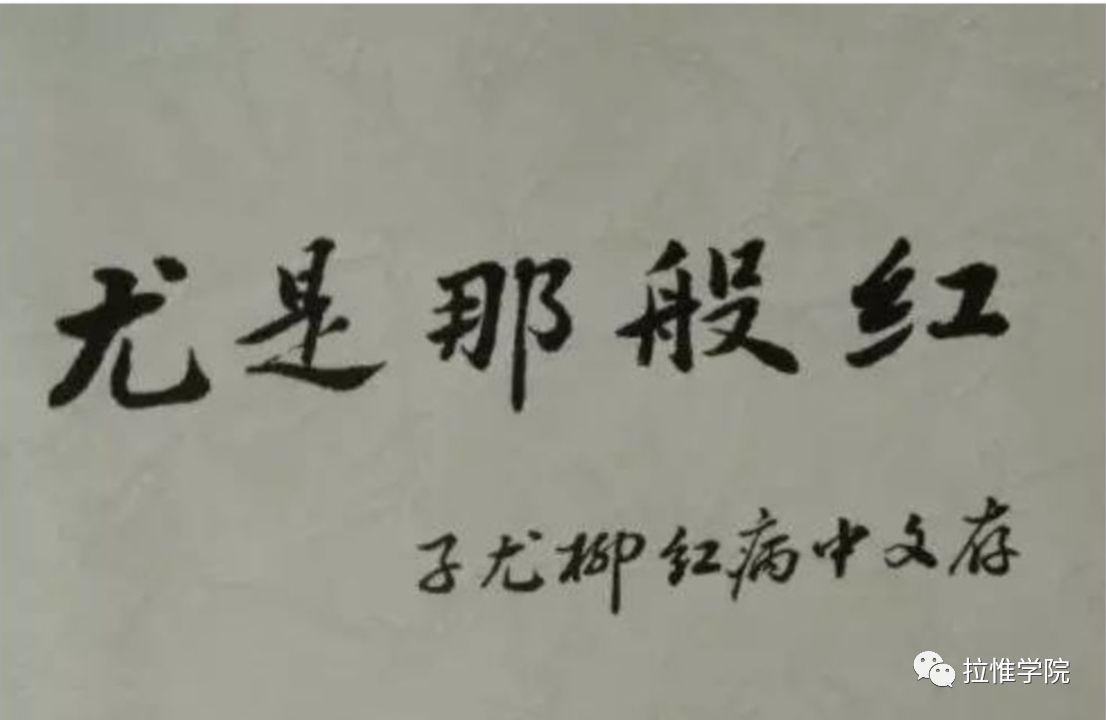 尤是那般红
子尤柳红病中文存
拉惟学院